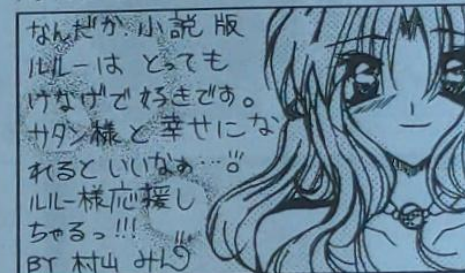 なんだか小説版
ルルーは とっても
けなげで好きです。
サタン様と幸せにな
れるといいなぁ…
ルルー様応援し
ちゃるっ!!!
BY 村山 みん